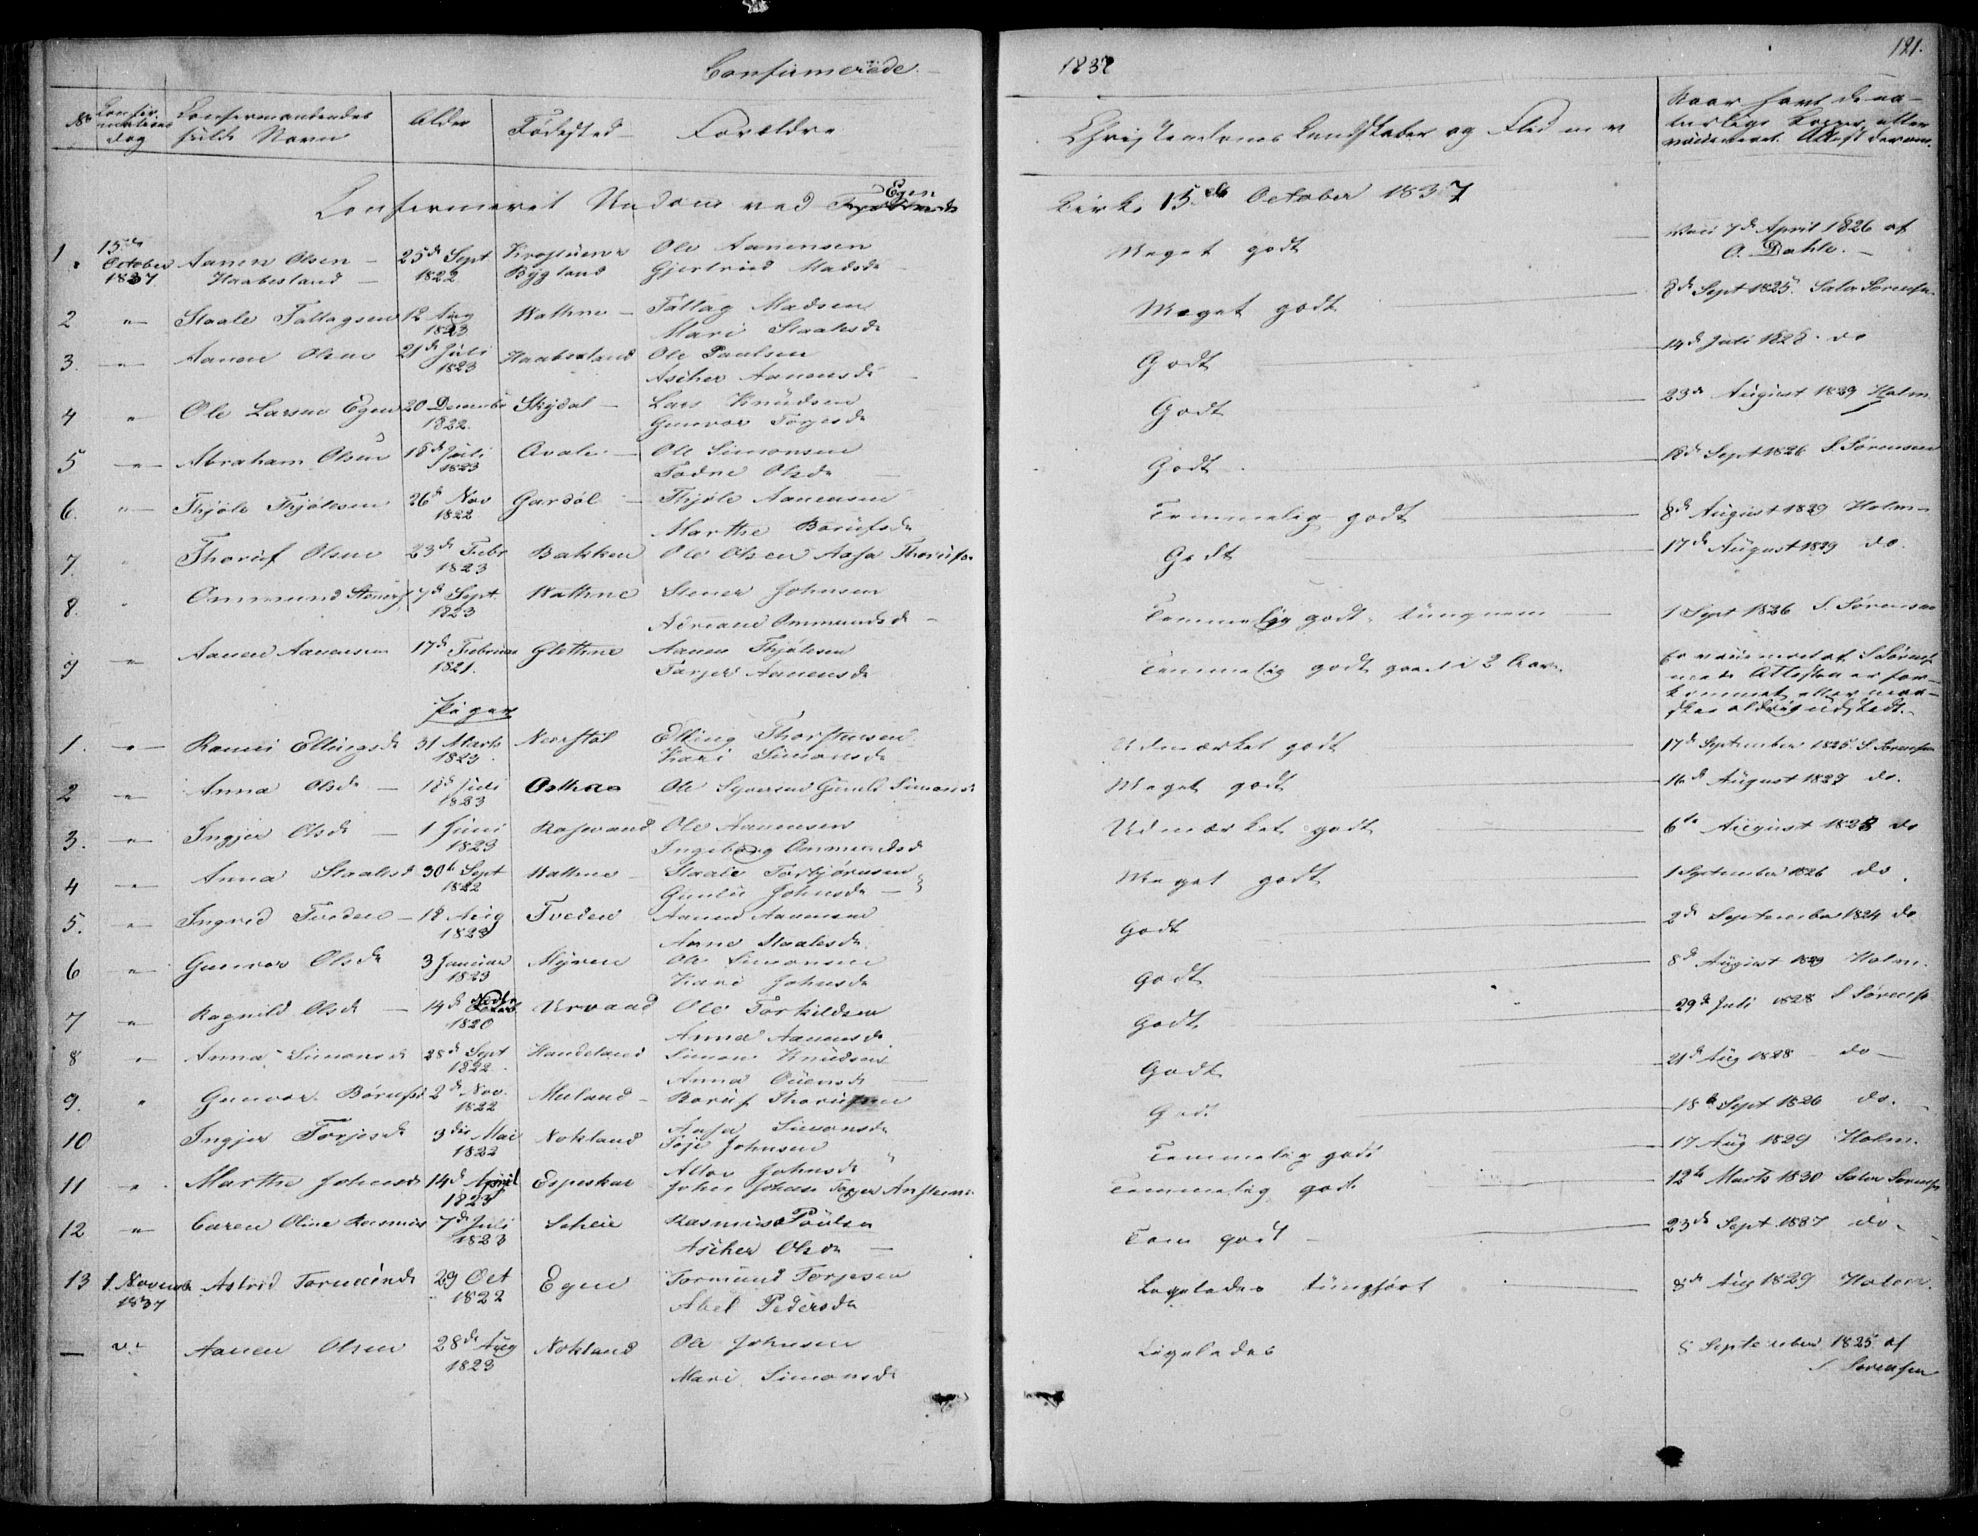 Confirmerede
1837
121.
No
Confir-
mations
dag
Confirmandendes
fulde Navn
Alder
Fødested
Forældre
Christendoms Kundskaber og Flid m v
Naar havt de na-
turlige Kopper eller
vaccineret. Attest derom.
Confirmeret Ungdom ved Egen
Kirke 15de October 1837
1. 15de October 1837. Aanen Olsen Haabesland 25de Sept 1822 Bygland Ole Aanensen
Gjertrud Madsdr
Meget godt
Vacc 7de April 1826 af
O. Dahle.
2 " Staale Tallagsen 12 Aug 1823 Vathne Tallag Madsen
Mari Staalesdr
Meget godt
8de Sept 1825. Salve Sørensen
3. " Aanen Olsen 21de Juli 1823 Haabesland Ole Paulsen
Ascher Aanensdr
Godt
14de Juli 1828. do
4 " Ole Larsen Egen 20 Decembr 1822. Skjdal Lars Knudsen
Gunvor Torjesdr
Godt
23de August 1829 Holm
5 " Abraham Olsen 18de Juli 1823 Ole Simonsen
Todne Olsdr
Godt
18de Sept 1826 S. Sørensen
6. " Thjøle Thjølesen 26de Nov 1822 Gardøl Thjøle Aanensen
Marthe Børufsdr
Temmelig godt
8de August 1829 Holm
7. " Thoruf Olsen 23de Febr 1823 Bakken Ole Olsen Aasa Thorufsdr
Godt
17de August 1829 do.
8. " Ommund Stenersen 7de Sept. 1823 Vathne Stener Johnsen
Adriane Ommundsdr
Temmelig godt. tungnem
1 Sept 1826 S. Sørensen
9 " Aanen Aanensen 17de Februar 1821. Glethne Aanen Thjølesen
Torjer Aanensdr
Temmelig godt gaaet i 2 Aar.
Er vaccineret af S Sørensen
men Attesten er for-
kommet eller maa-
skee aldrig udstedt.
Piger
1. " Ranni Ellingsdr 31 Marts 1823. Nerstøl Elling Thorstensen
Kari Simonsdr
Udmærket godt
17de September 1825. S. Sørensen
2 " Anna Olsdr 18de Juli 1823 Ole Syversen Gunild Simonsdr
Meget godt
16de August 1827 do.
3. " Ingjer Olsdr 1 Juni 1823 Rosevand Ole Aanensen
Ingeborg Ommundsdr
Udmærket godt
6te August 1828 do
4 " Anna Staalesdr 30te Sept 1822 Vathne Staale Torbjørnsen
Gunild Johnsdr
Meget godt
1 September 1826 do.
5. " Ingrid Tveden 18 Aug 1823 Tveden Aanen Aanensen
Anne Staalesdr
Godt
2de September 1824 do
6 " Gunvor Olsdr 3 Januar 1823 Myren Ole Simonsen
Kari Johnsdr
Godt
8de August 1829 Holm.
7 " Ragnild Olsdr 14de 1820 Urvand Ole Torkildsen
Anna Aanensdr
Godt
29de Juli 1828 S Sørensen
8 " Anna Simonsdr 28de Sept 1822. Handeland Simon Knudsen
Anna Ouensdr
Godt
21de Aug 1828 do
9. " Gunvor Børufsdr 2de Nov. 1822 Meland Børuf Thorufsen
Aasa Simonsdr
Godt
18de Sept 1826 do.
10 Ingjer Torjesdr 3die Mai 1822 Nokland Johnsen
Johnsdr
Temmelig godt
17 Aug 1829 Holm.
11 " Marthe Johnsdr 14de April 1823 Espeskar John Torjer
Temmelig godt
12te Marts 1830 Salve Sørensen
12 " Caren Oline Rasmusdr 7de Juli 1823 Scheie Rasmus Poulsen
Ascher Olsdr
Tem godt
23de Sept 1837 do
13 1 November 1837 Astrid Tormundsdr 29 Oct 1822 Egen Tormund Torjesen
Abel Pedersdr
Ligeledes tungført
8de Aug 1829 Holm.
— Aanen Olsen 28de Aug 1823 Nokland Ole Johnsen
Mari Simonsdr
Ligeledes
8 September 1825 af
S Sørensen